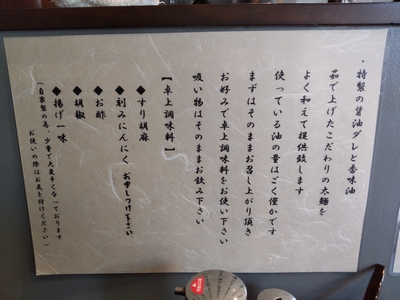 ・特製の醤油ダレと香味油
茹で上げたこだわりの太麺を
よく和えて提供致します
使っている油の量はごく僅かです
まずはそのままお召し上がり頂き
お好みで卓上調味料をお使い下さい
吸い物はそのままお飲み下さい
【卓上調味料】
◆すり胡麻
◆刻みにんにく お申しつけ下さい
◆お酢
◆胡椒
◆揚げ一味
(自家製の為、少量で大変辛くなっております
お使いの際はお気を付けください)